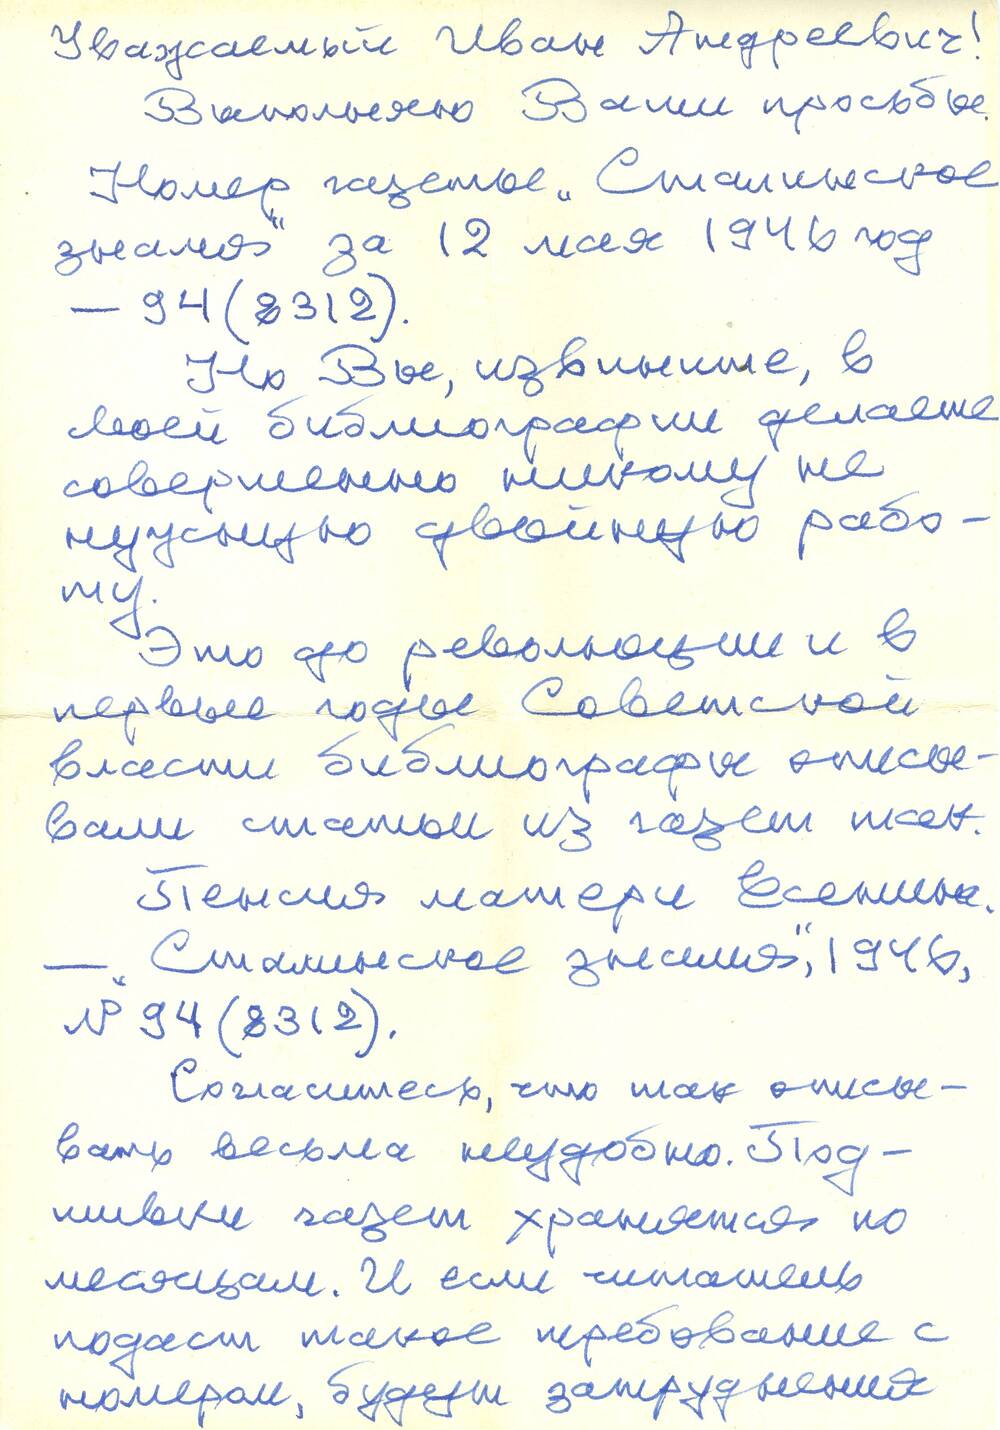 Уважаемый Иван Андреевич!
Выполняю Ваши просьбы.
Номер газеты „Сталинское
знамя" за 12 мая 1946 год
— 94 (8312).
Но Вы, извините, в
своей библиографии делаете
совершенно никому не
нужную двойную рабо-
ту.
Это до революции и в
первые годы Советской
власти библиографы описы-
вали статьи из газет так.
Пенсия матери Есенина.
— „Сталинское знамя", 1946,
№ 94 (8312).
Согласитесь, что так описы-
вать весьма неудобно. Под-
шивки газет хранятся по
месяцам. И если читатель
подаст такое требование с
номером, будут затруднения